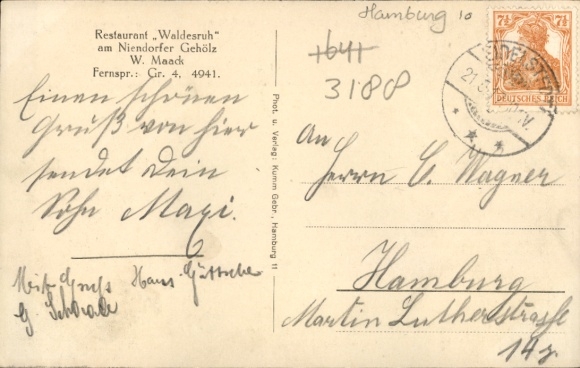 Restaurant „Waldesruh"
am Niendorfer Gehölz
W. Maack
Fernspr.: Gr. 4. 4941.
Einen schönen
Gruß von hier
sendet Dein
Sohn Maxi.
Mit Gruß Hans
G.
Phot. u. Verlag: Kumm Gebr., Hamburg 11
Hamburg 10
1641
3188
7½ 7½
DEUTSCHES REICH
EIDELSTEDT
An
Herrn C. Wagner
Hamburg
Martin Lutherstrasse
14